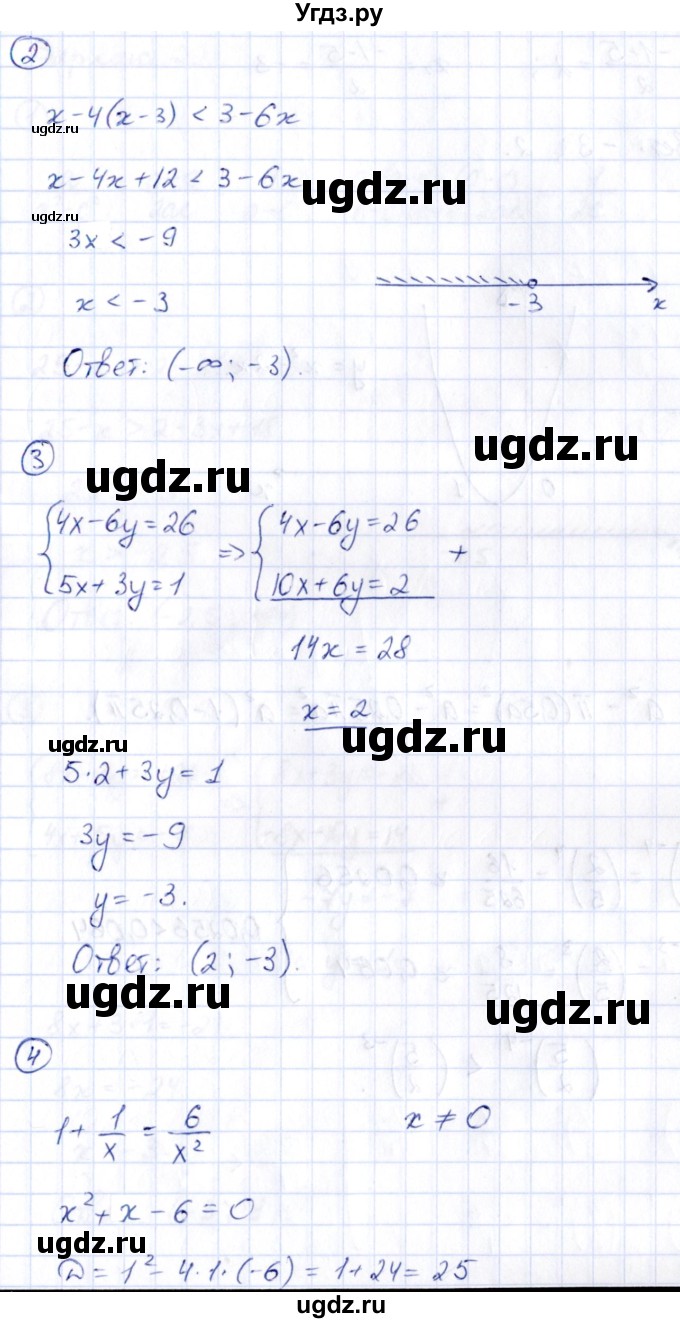 Угдз.ру
2
x-4(x-3) < 3-6x
ugdz.ru
x-4x+12 < 3-6x
ugdz.ru
ugdz.ru
3x < -9
x < -3
-3
x
Ответ: (-∞; -3).
3
ugdz.ru
ugdz.ru
{4x-6y=26 => {4x-6y=26 +
5x+3y=1 10x+6y=2
14x = 28
x = 2
ugdz.ru
ugdz.ru
5·2+3y=1
3y = -9
y = -3.
Ответ: (2; -3).
ugdz.ru
ugdz.ru
4
1+ 1/x = 6/x² x ≠ 0
x²+x-6=0
ugdz.ru
D=1²-4·1·(-6)=1+24=25
ugdz.ru